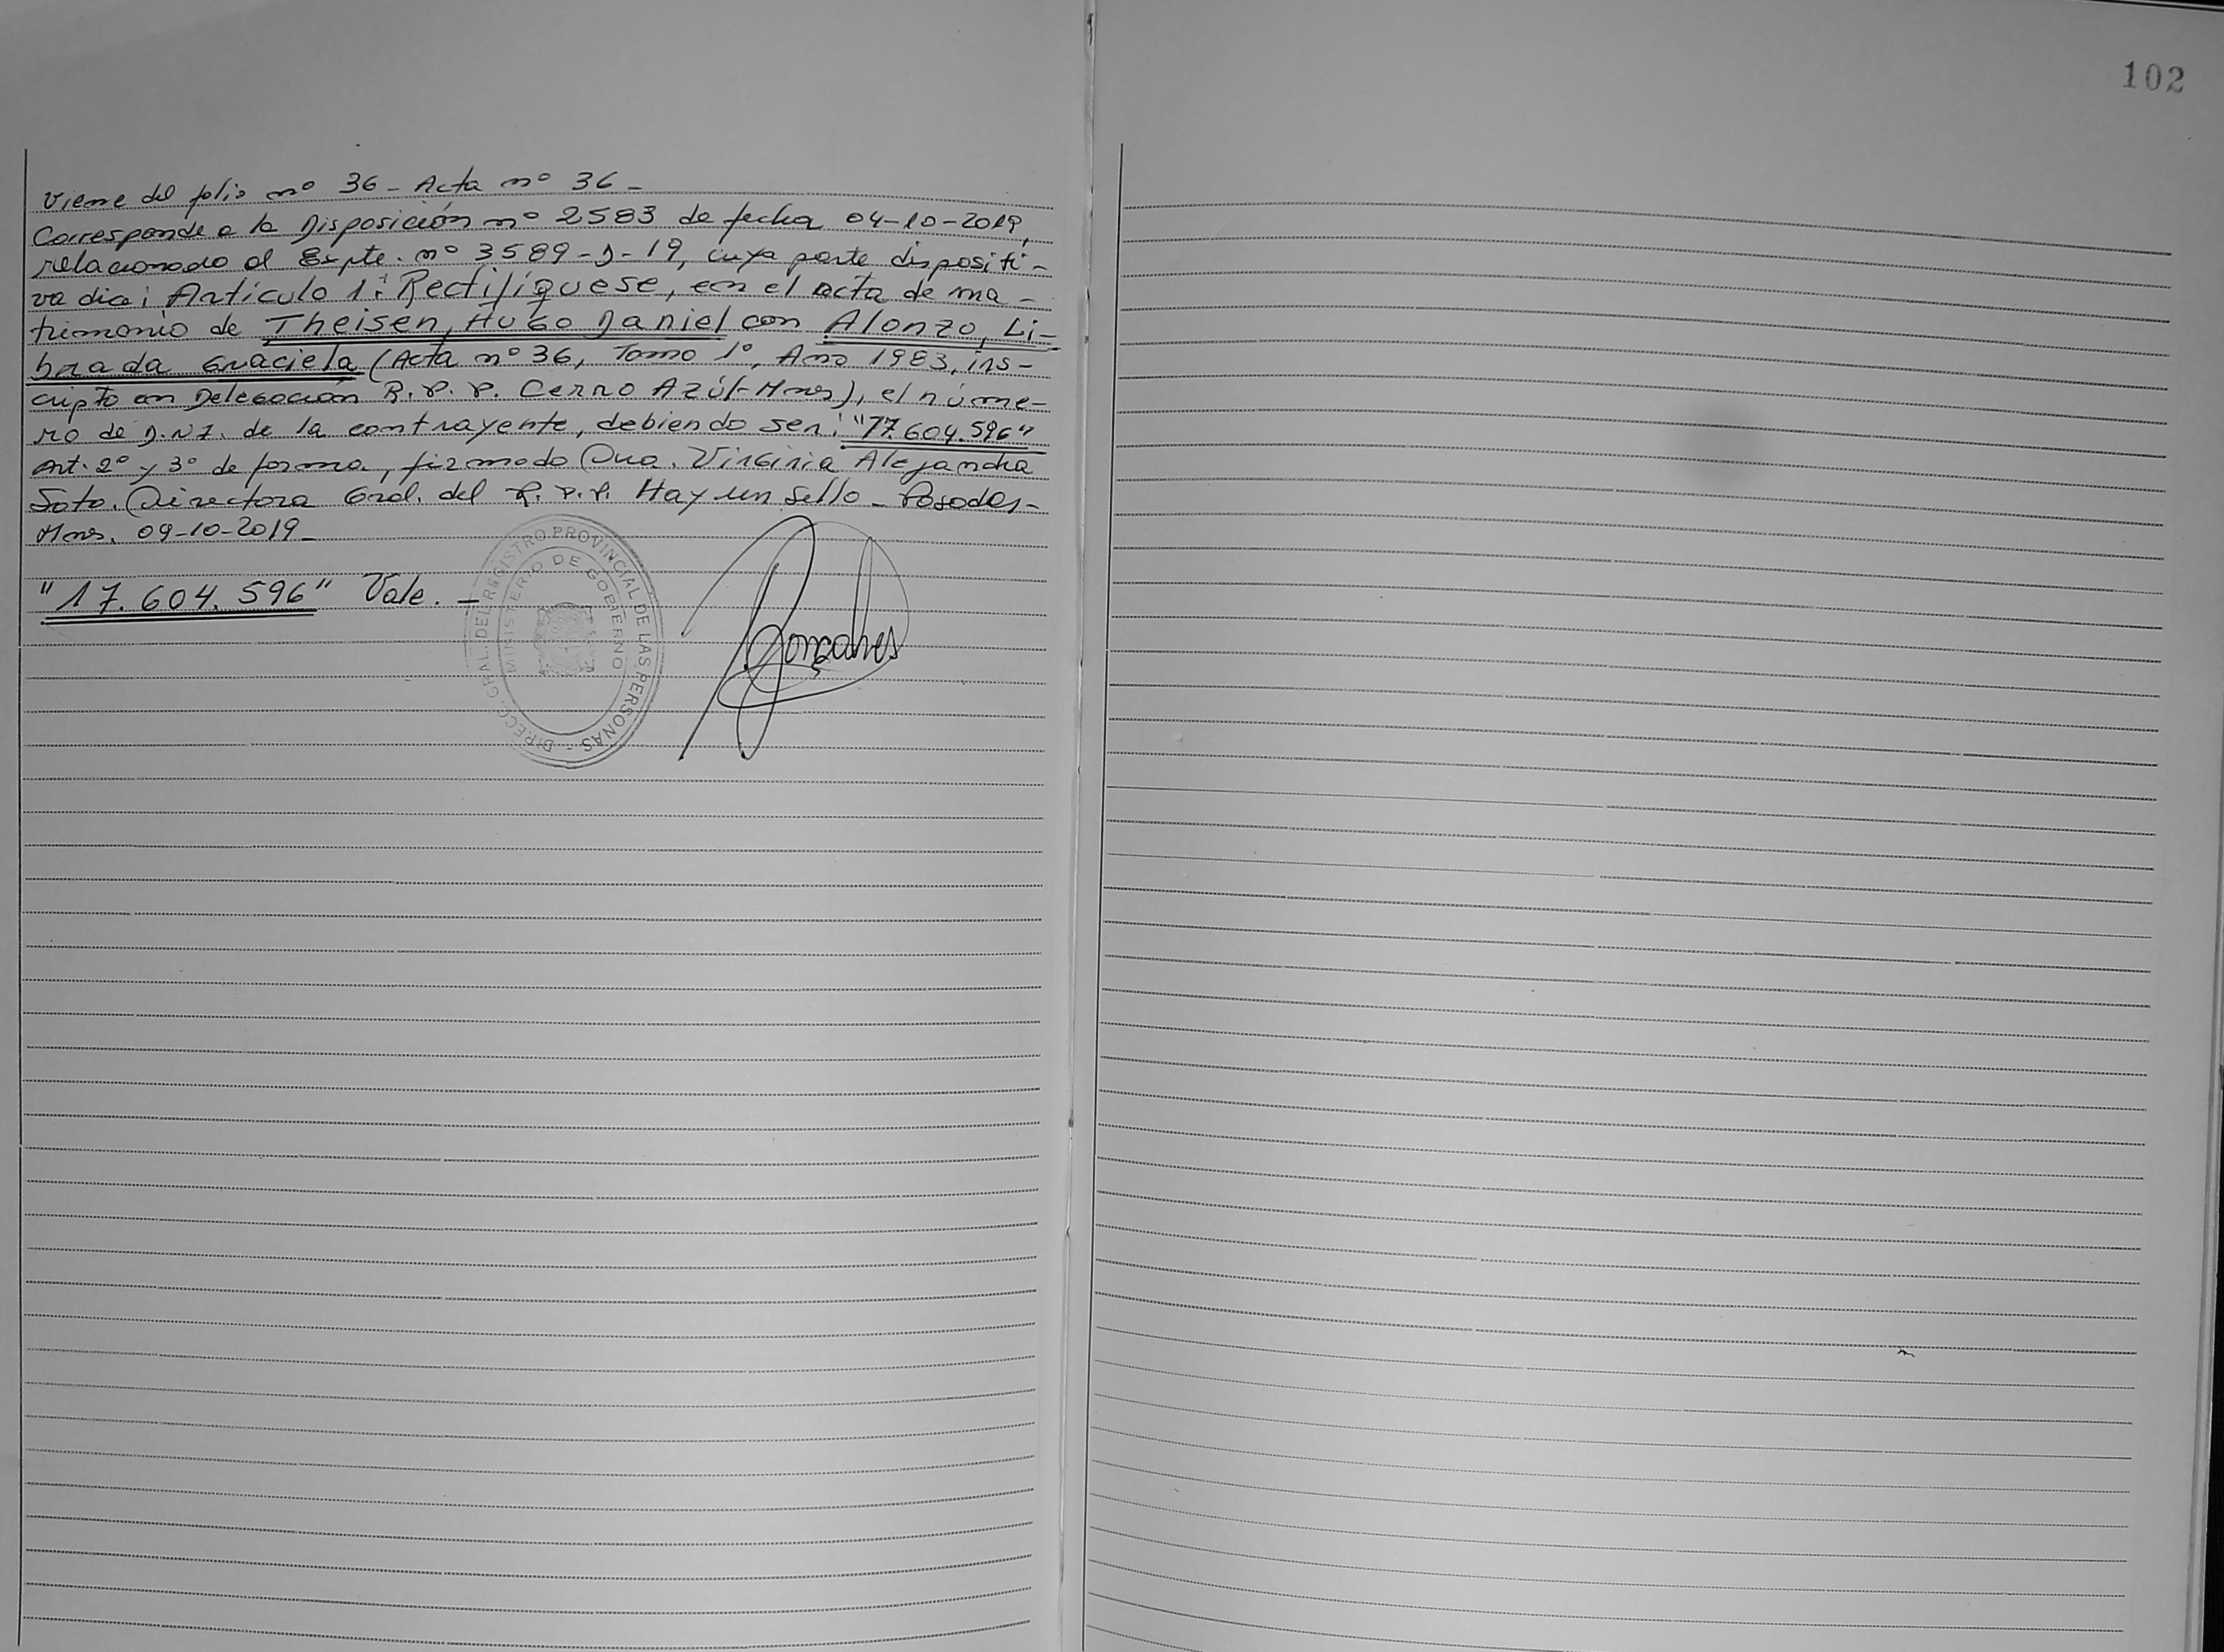 102
Viene del folio nº 36 - Acta nº 36 -
Corresponde a la Disposición nº 2583 de fecha 04-10-2019,
relacionado al Expte. nº 3589-D-19, cuya parte dispositi-
va dice: Artículo 1: Rectifíquese, en el acta de ma-
trimonio de Theisen, Hugo Daniel con Alonzo, Li-
brada Graciela (Acta nº 36, Tomo 1º, Año 1983, ins-
cripto en Delegación R.P.P. Cerro Azúl-Mnes), el núme-
ro de D.N.I. de la contrayente, debiendo ser: "17.604.596"
Art. 2º y 3º de forma, firmado Dra. Virginia Alejandra
Soto. Directora Gral. del R.P.P. Hay un sello - Posadas-
Mnes. 09-10-2019 -
"17.604.596" Vale. -
DIRECC. GRAL. DEL REGISTRO PROVINCIAL DE LAS PERSONAS -
MINISTERIO DE GOBIERNO
Gonçalves